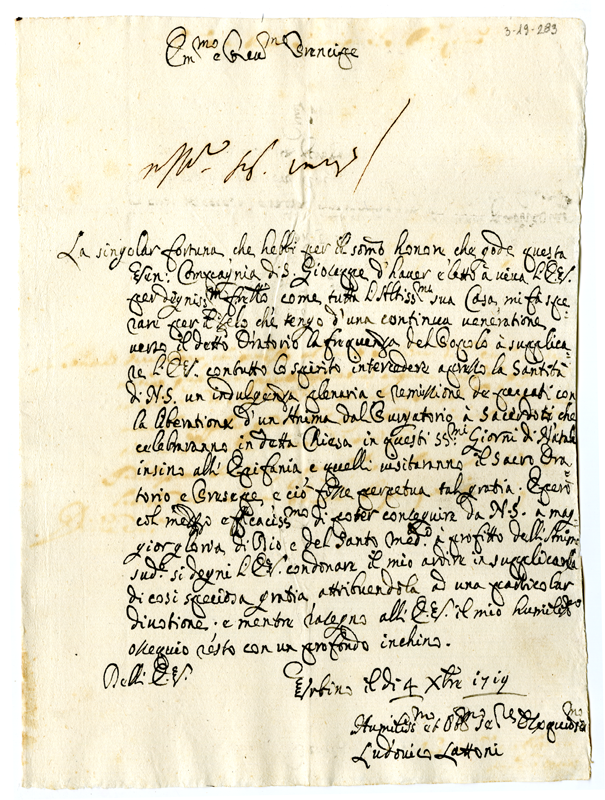 3-19-283
Em.mo e Reu.mo Prencipe
La singolar fortuna che hebbi per il somo honore che gode questa
Ven: Compagnia di S. Gioseppe d'hauer eletto à l'E.V.
per degniss.mo Frello come tutta l'Altiss.ma sua Casa, mi fà spe=
rare per il zelo che tengo d'una continua ueneratione
uerso il detto Oratorio la frequenza del Popolo à supplica=
re l'E.V. contutto lo spirito intercedere appresso la Santità
di N.S. un indulgenza plenaria e remissione de peccati con
la liberatione d'un Anima dal Purgatorio à Sacerdoti che
celebraranno in detta Chiesa in questi SS.mi Giorni di Natale
insino all'Epifania e quelli uisitaranno il Sacro Ora=
torio e Presepe, e ciò fosse perpetua tal gratia; E però
col mezzo efficaciss.mo di poter conseguire da N.S. a mag=
gior gloria di Dio e del Santo Med.o à profitto dell'Anime
sud.e si degni l'E.V. condonare il mio ardire in supplicarla
di così speciosa gratia attribuendola ad una particolar
diuotione. e mentre rasegno all'E.V. il mio humiliss.mo
ossequio resto con un profondo inchino.
Dell'E.V.
Urbino il dì 4 Xbre 1719
Humiliss.mo et Obb.mo Se.re Ossequiosis.mo
Ludouico Lattoni